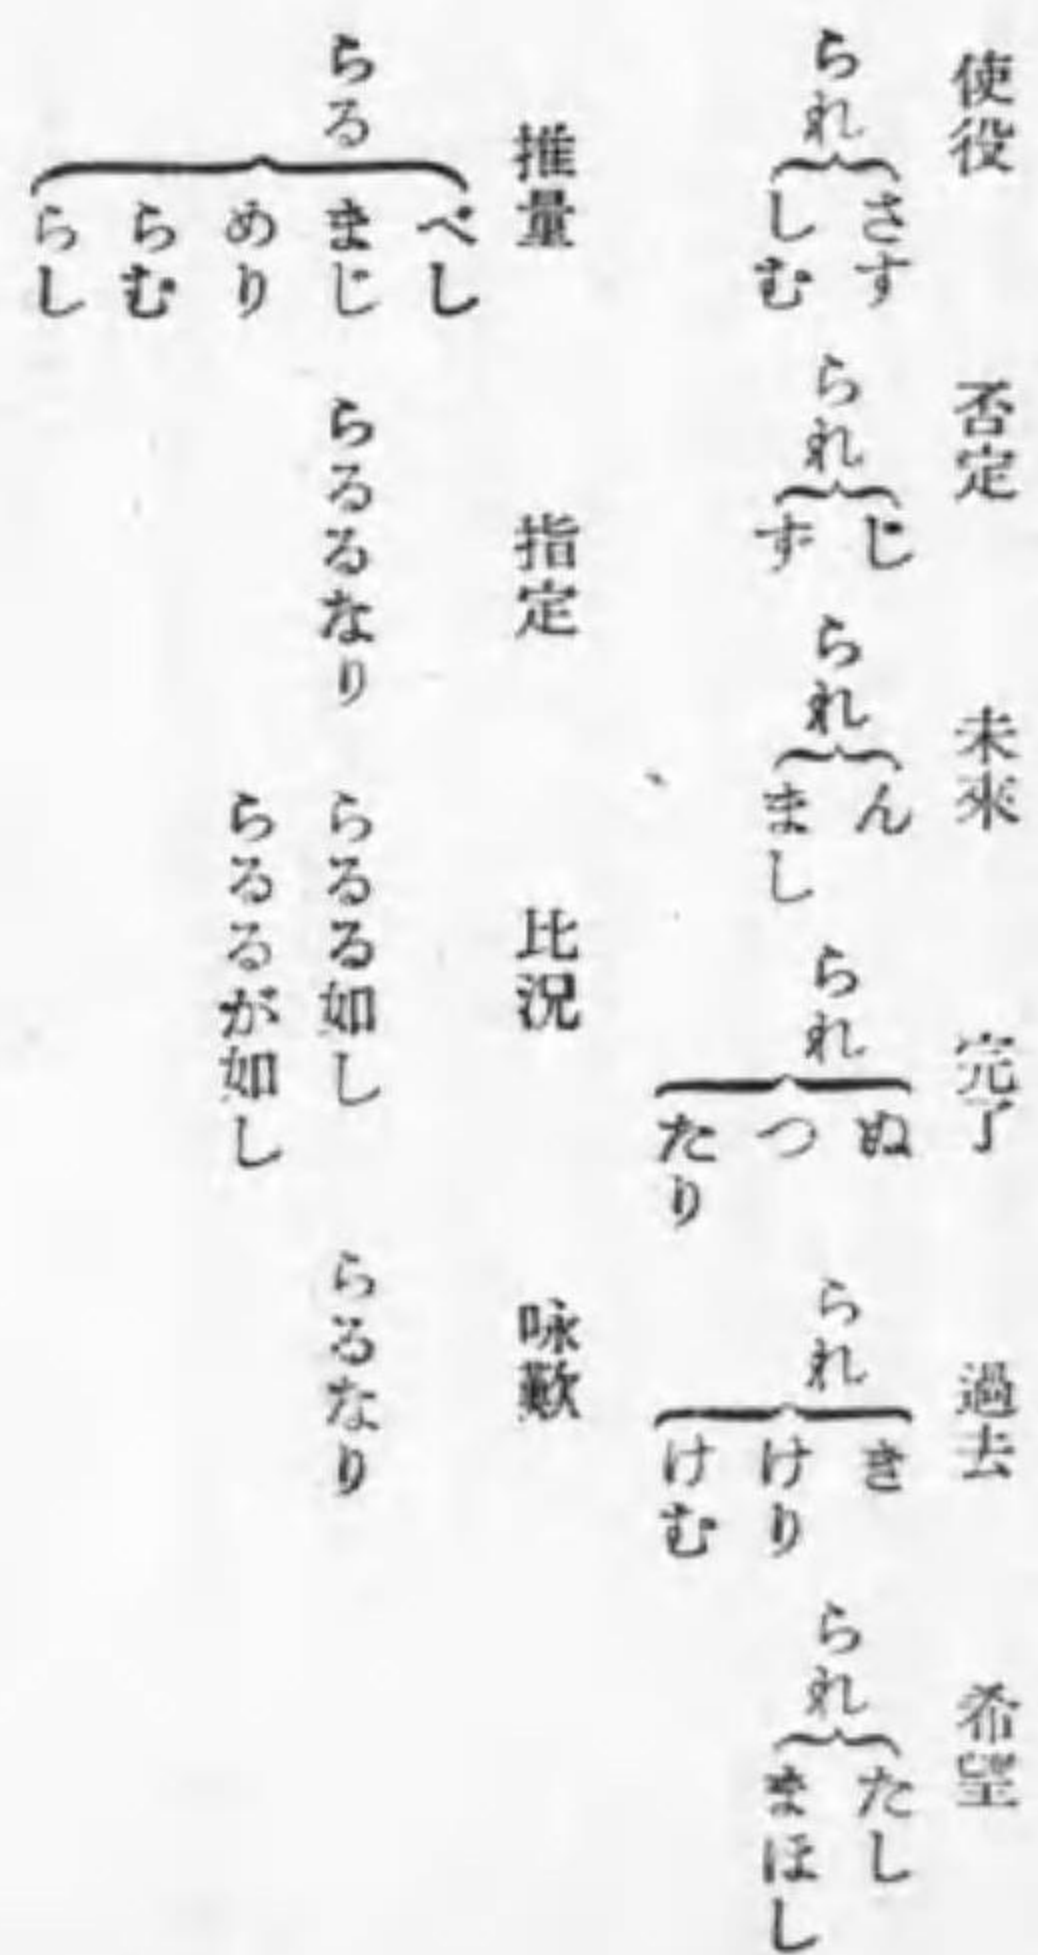 使役 否定 未來 完了 過去 希望
られ{さす しむ
られ{じ ず
られ{ん まし
られ{ぬ つ たり
られ{き けり けむ
られ{たし まほし
推量 指定 比況 咏歎
らる{べし まじ めり らむ らし
らるるなり
らるる如し
らるるが如し
らるなり